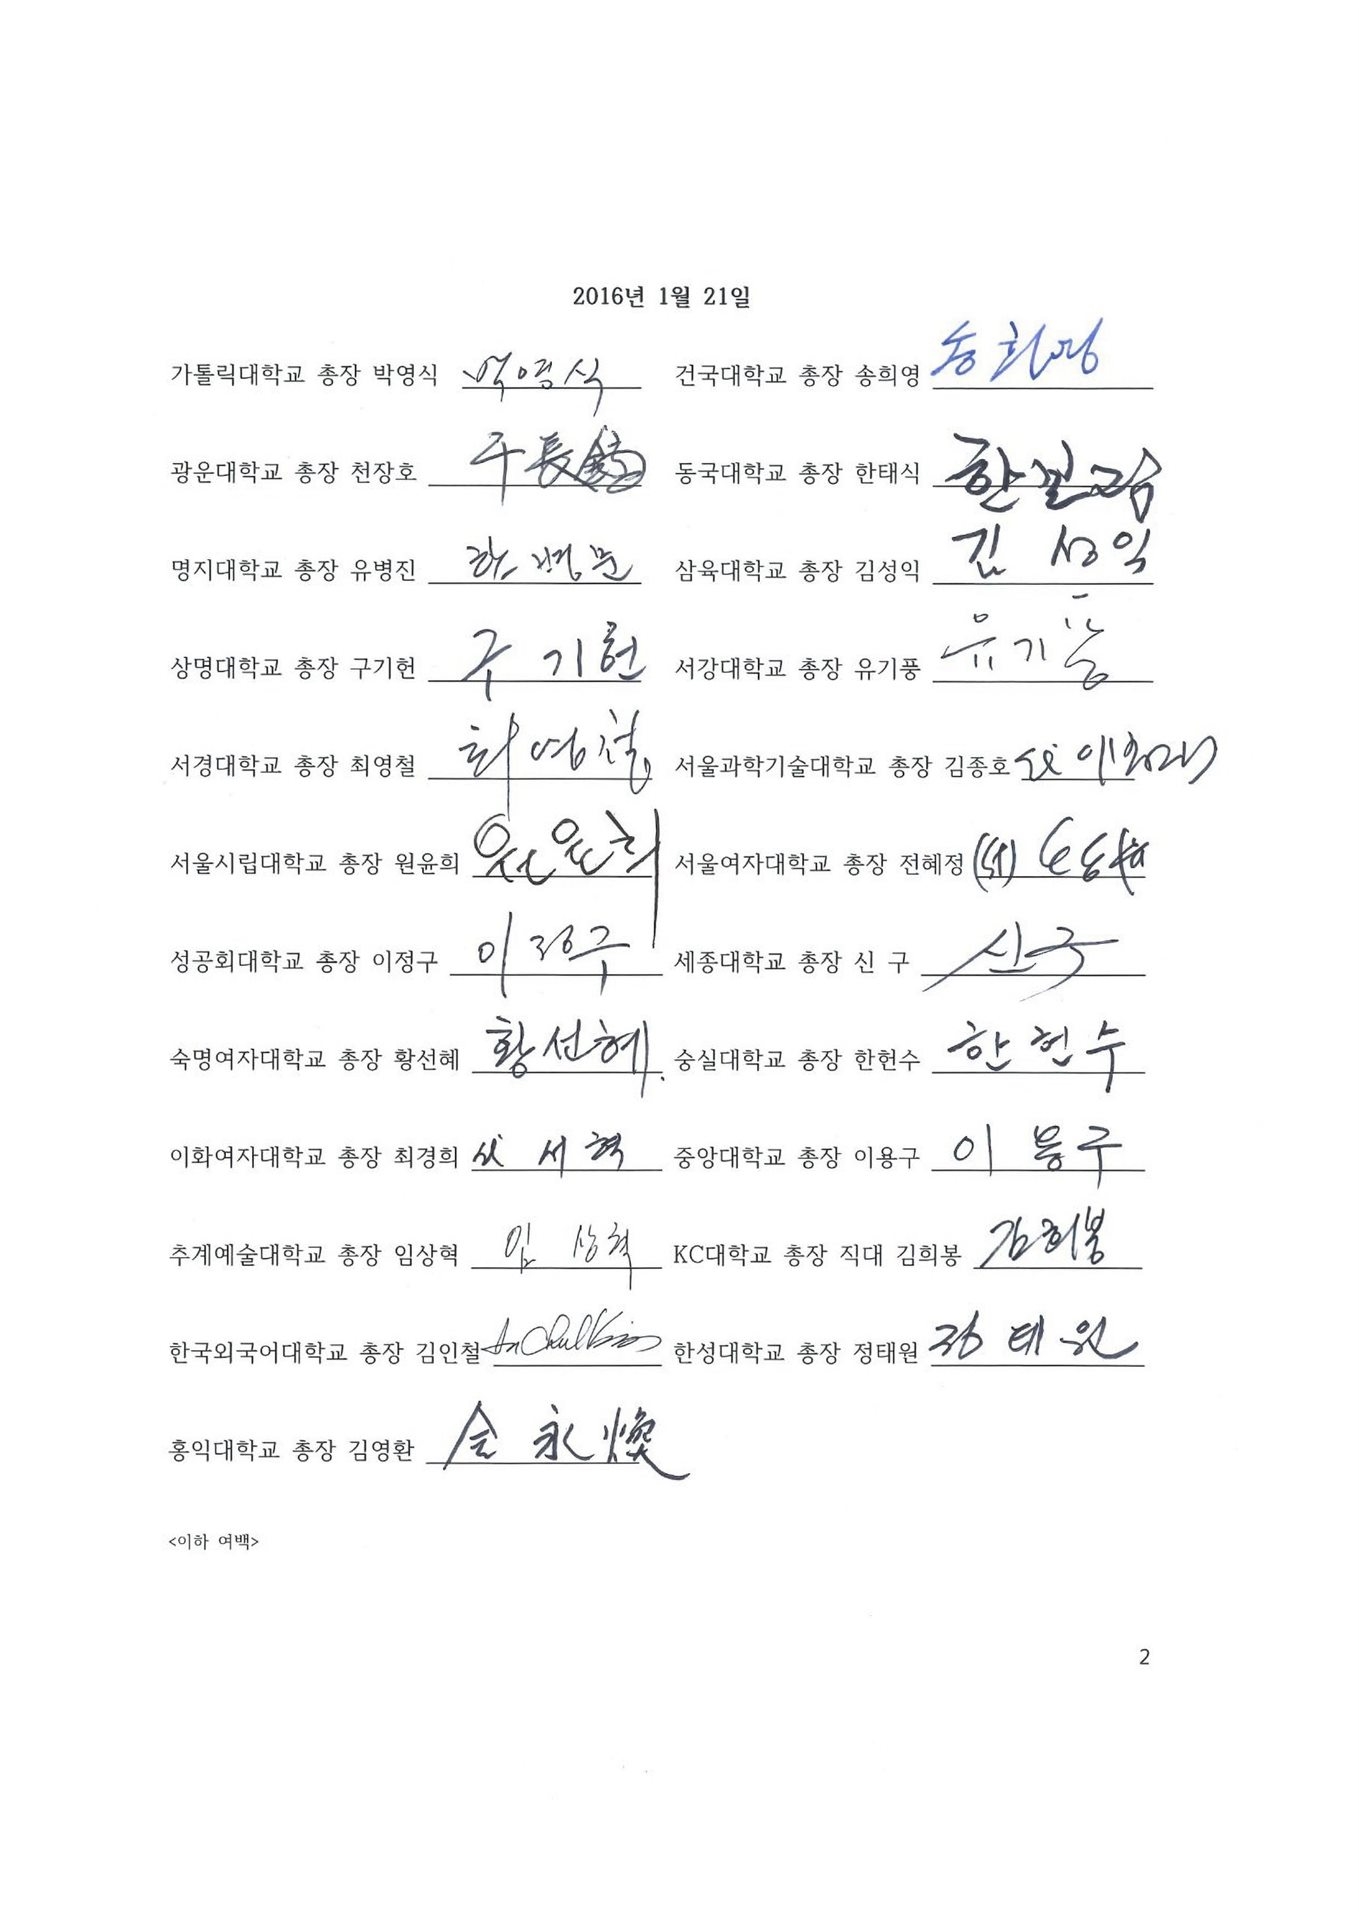 2016년 1월 21일
가톨릭대학교 총장 박영식 박영식 건국대학교 총장 송희영 송희영
광운대학교 총장 천장호 千長鎬 동국대학교 총장 한태식
명지대학교 총장 유병진 삼육대학교 총장 김성익 김성익
상명대학교 총장 구기헌 구기헌 서강대학교 총장 유기풍 유기풍
서경대학교 총장 최영철 최영철 서울과학기술대학교 총장 김종호
서울시립대학교 총장 원윤희 원윤희 서울여자대학교 총장 전혜정
성공회대학교 총장 이정구 이정구 세종대학교 총장 신 구 신구
숙명여자대학교 총장 황선혜 황선혜. 숭실대학교 총장 한헌수 한헌수
이화여자대학교 총장 최경희 서혁 중앙대학교 총장 이용구 이용구
추계예술대학교 총장 임상혁 임상혁 KC대학교 총장 직대 김희봉 김희봉
한국외국어대학교 총장 김인철 한성대학교 총장 정태원 정태원
홍익대학교 총장 김영환 金永煥
<이하 여백>
2